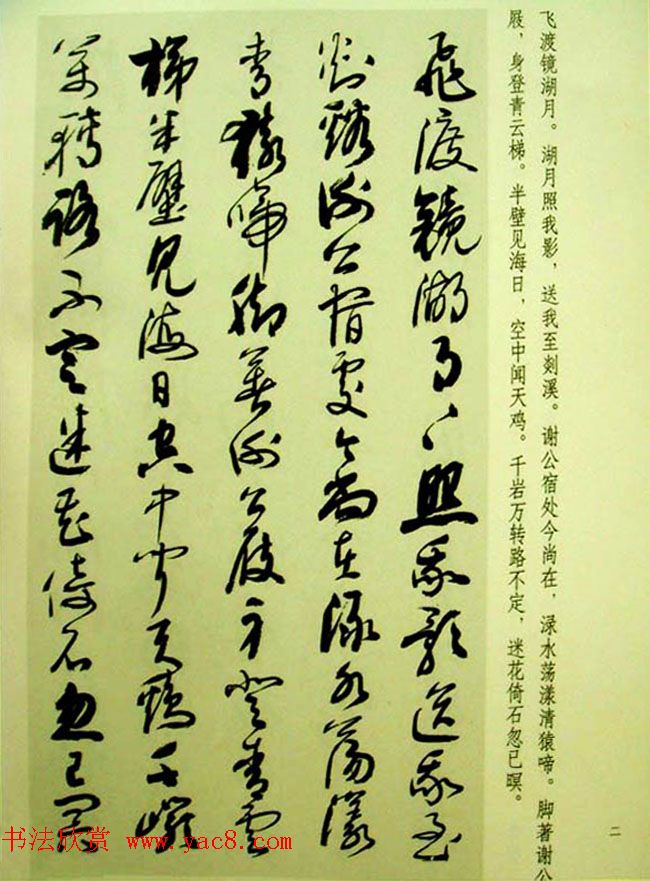 飞渡镜湖月。湖月照我影，送我至剡溪。谢公宿处今尚在，渌水荡漾清猿啼。脚著谢公
屐，身登青云梯。半壁见海日，空中闻天鸡。千岩万转路不定，迷花倚石忽已暝。
二
飛渡鏡湖月々照我影送我至
剡谿謝公宿處今尚在渌水蕩漾
青猿啼脚著謝公屐身登青雲
梯半壁見海日空中聞天鷄千巖
萬轉路不定迷花倚石忽已暝
书法欣赏 www.yac8.com